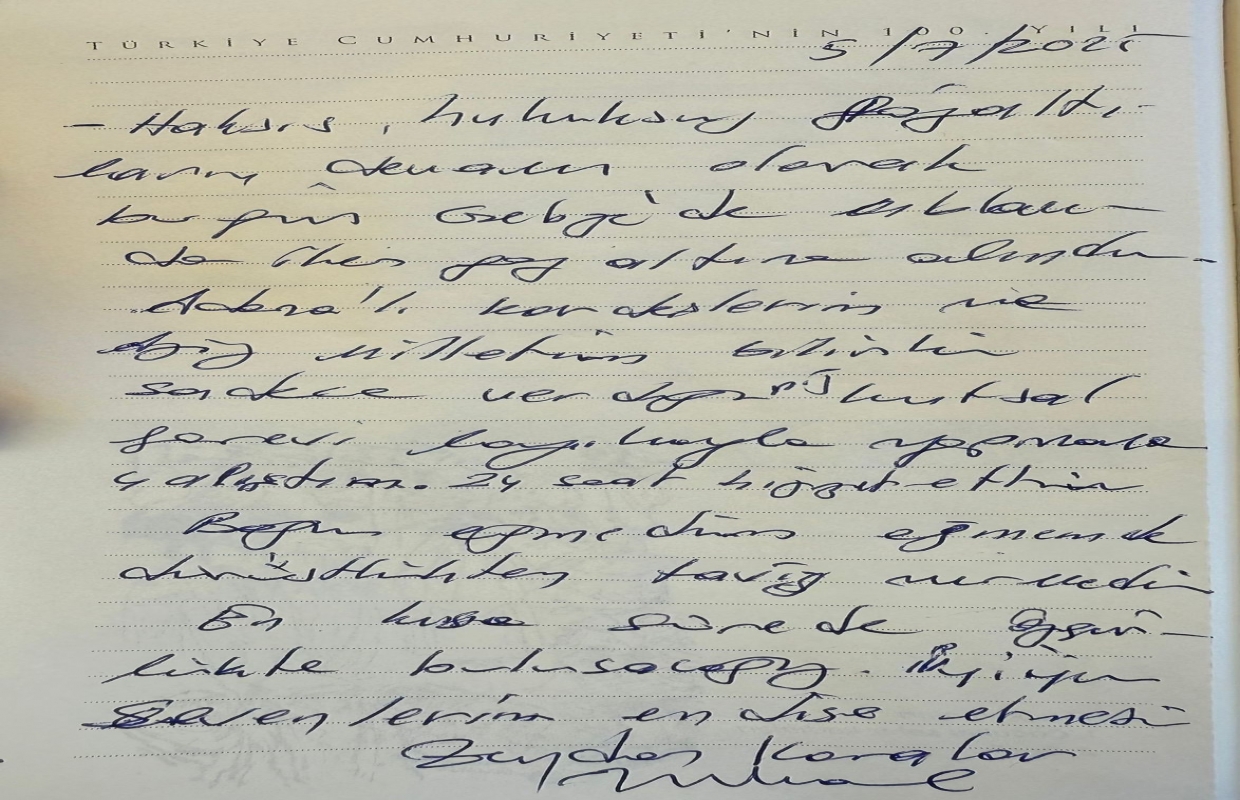 TÜRKİYE CUMHURİYETİ'NİN 100. YILI
5/7/2025
- Haksız, hukuksuz gözaltı-
ların devamı olarak
bu gün Gebze'de
da ben göz altına alındım.
Adana'lı kardeşlerim ve
Aziz Milletim bilsin ki
sadece verdiğiniz kutsal
görevi layıkıyla yapmaya
çalıştım. 24 saat hizmet ettim
Boyun eğmedim eğmem de
dürüstlükten taviz vermedim
En kısa sürede özgür-
lükte buluşacağız. İyiyim
Sevenlerim endişe etmesin
Zeydan Karalar